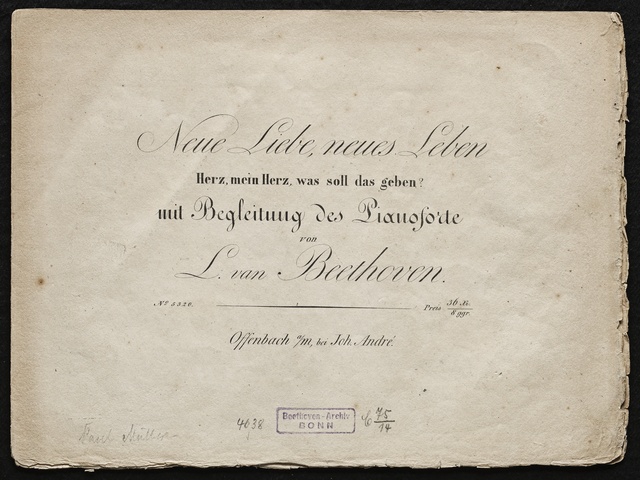 Neue Liebe, neues Leben
Herz, mein Herz, was soll das geben?
mit Begleitung des Pianoforte
von
L. van Beethoven.
Nº 5520. Preis 36 Xr.
8 ggr.
Offenbach a/m, bei Joh. André.
4638 Beethoven-Archiv
BONN
75
14